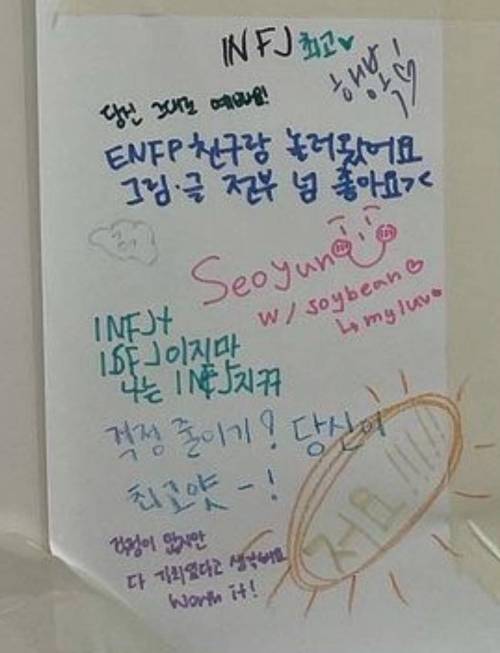 INFJ 최고♡
행복♡
당신 그대로 예뻐요!
ENFP 친구랑 놀러왔어요
그림·글 전부 넘 좋아요><
Seoyun
w/ soybean♡
↳ my luv♡
INFJ
ISFJ이지만
나는 INFJ
걱정 줄이기! 당신이
최고얏-!
저요!!!!!
걱정이 많지만
다 기회였다고 생각해요
Worth it!